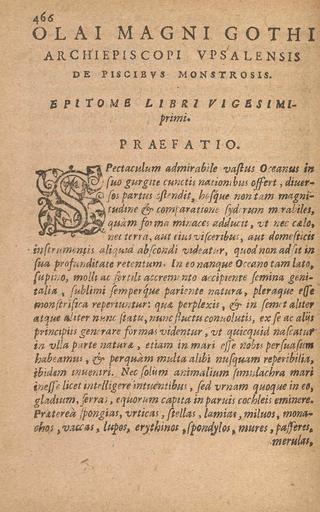 466
OLAI MAGNI GOTHI
ARCHIEPISCOPI VPSALENSIS
DE PISCIBVS MONSTROSIS.
EPITOME LIBRI VIGESIMI-
primi.
PRAEFATIO.
SPectaculum admirabile vastus Oceanus in
suo gurgite cunctis nationibus offert, diuer-
sos partus ostendit, hosque non tam magni-
tudine & comparatione syderum mirabiles,
quàm forma minaces adducit, vt nec cælo,
nec terra, aut eius visceribus, aut domesticis
instrumentis aliquid abscondi videatur, quod non adsit in
sua profunditate retentum. In eo nanque Oceano tam lato,
supino, molli ac fertili accremento accipiente semina geni-
talia, sublimi semperque pariente natura, pleraque esse
monstrifica reperiuntur: quæ perplexis, & in semet aliter
atque aliter nunc flatu, nunc fluctu conuolutis, ex se ac aliis
principiis generare formas videntur, vt quicquid nascatur
in vlla parte naturæ, etiam in mari esse nobis persuasum
habeamus, & perquàm multa alibi nusquam reperibilia,
ibidem inueniri. Nec solum animalium simulachra mari
inesse licet intelligere intuentibus, sed vrnam quoque in eo,
gladium, serras, equorum capita in paruis cochleis eminere.
Prætereà spongias, vrticas, stellas, lamias, miluos, mona-
chos, vaccas, lupos, erythinos, spondylos, mures, passeres,
merulas,